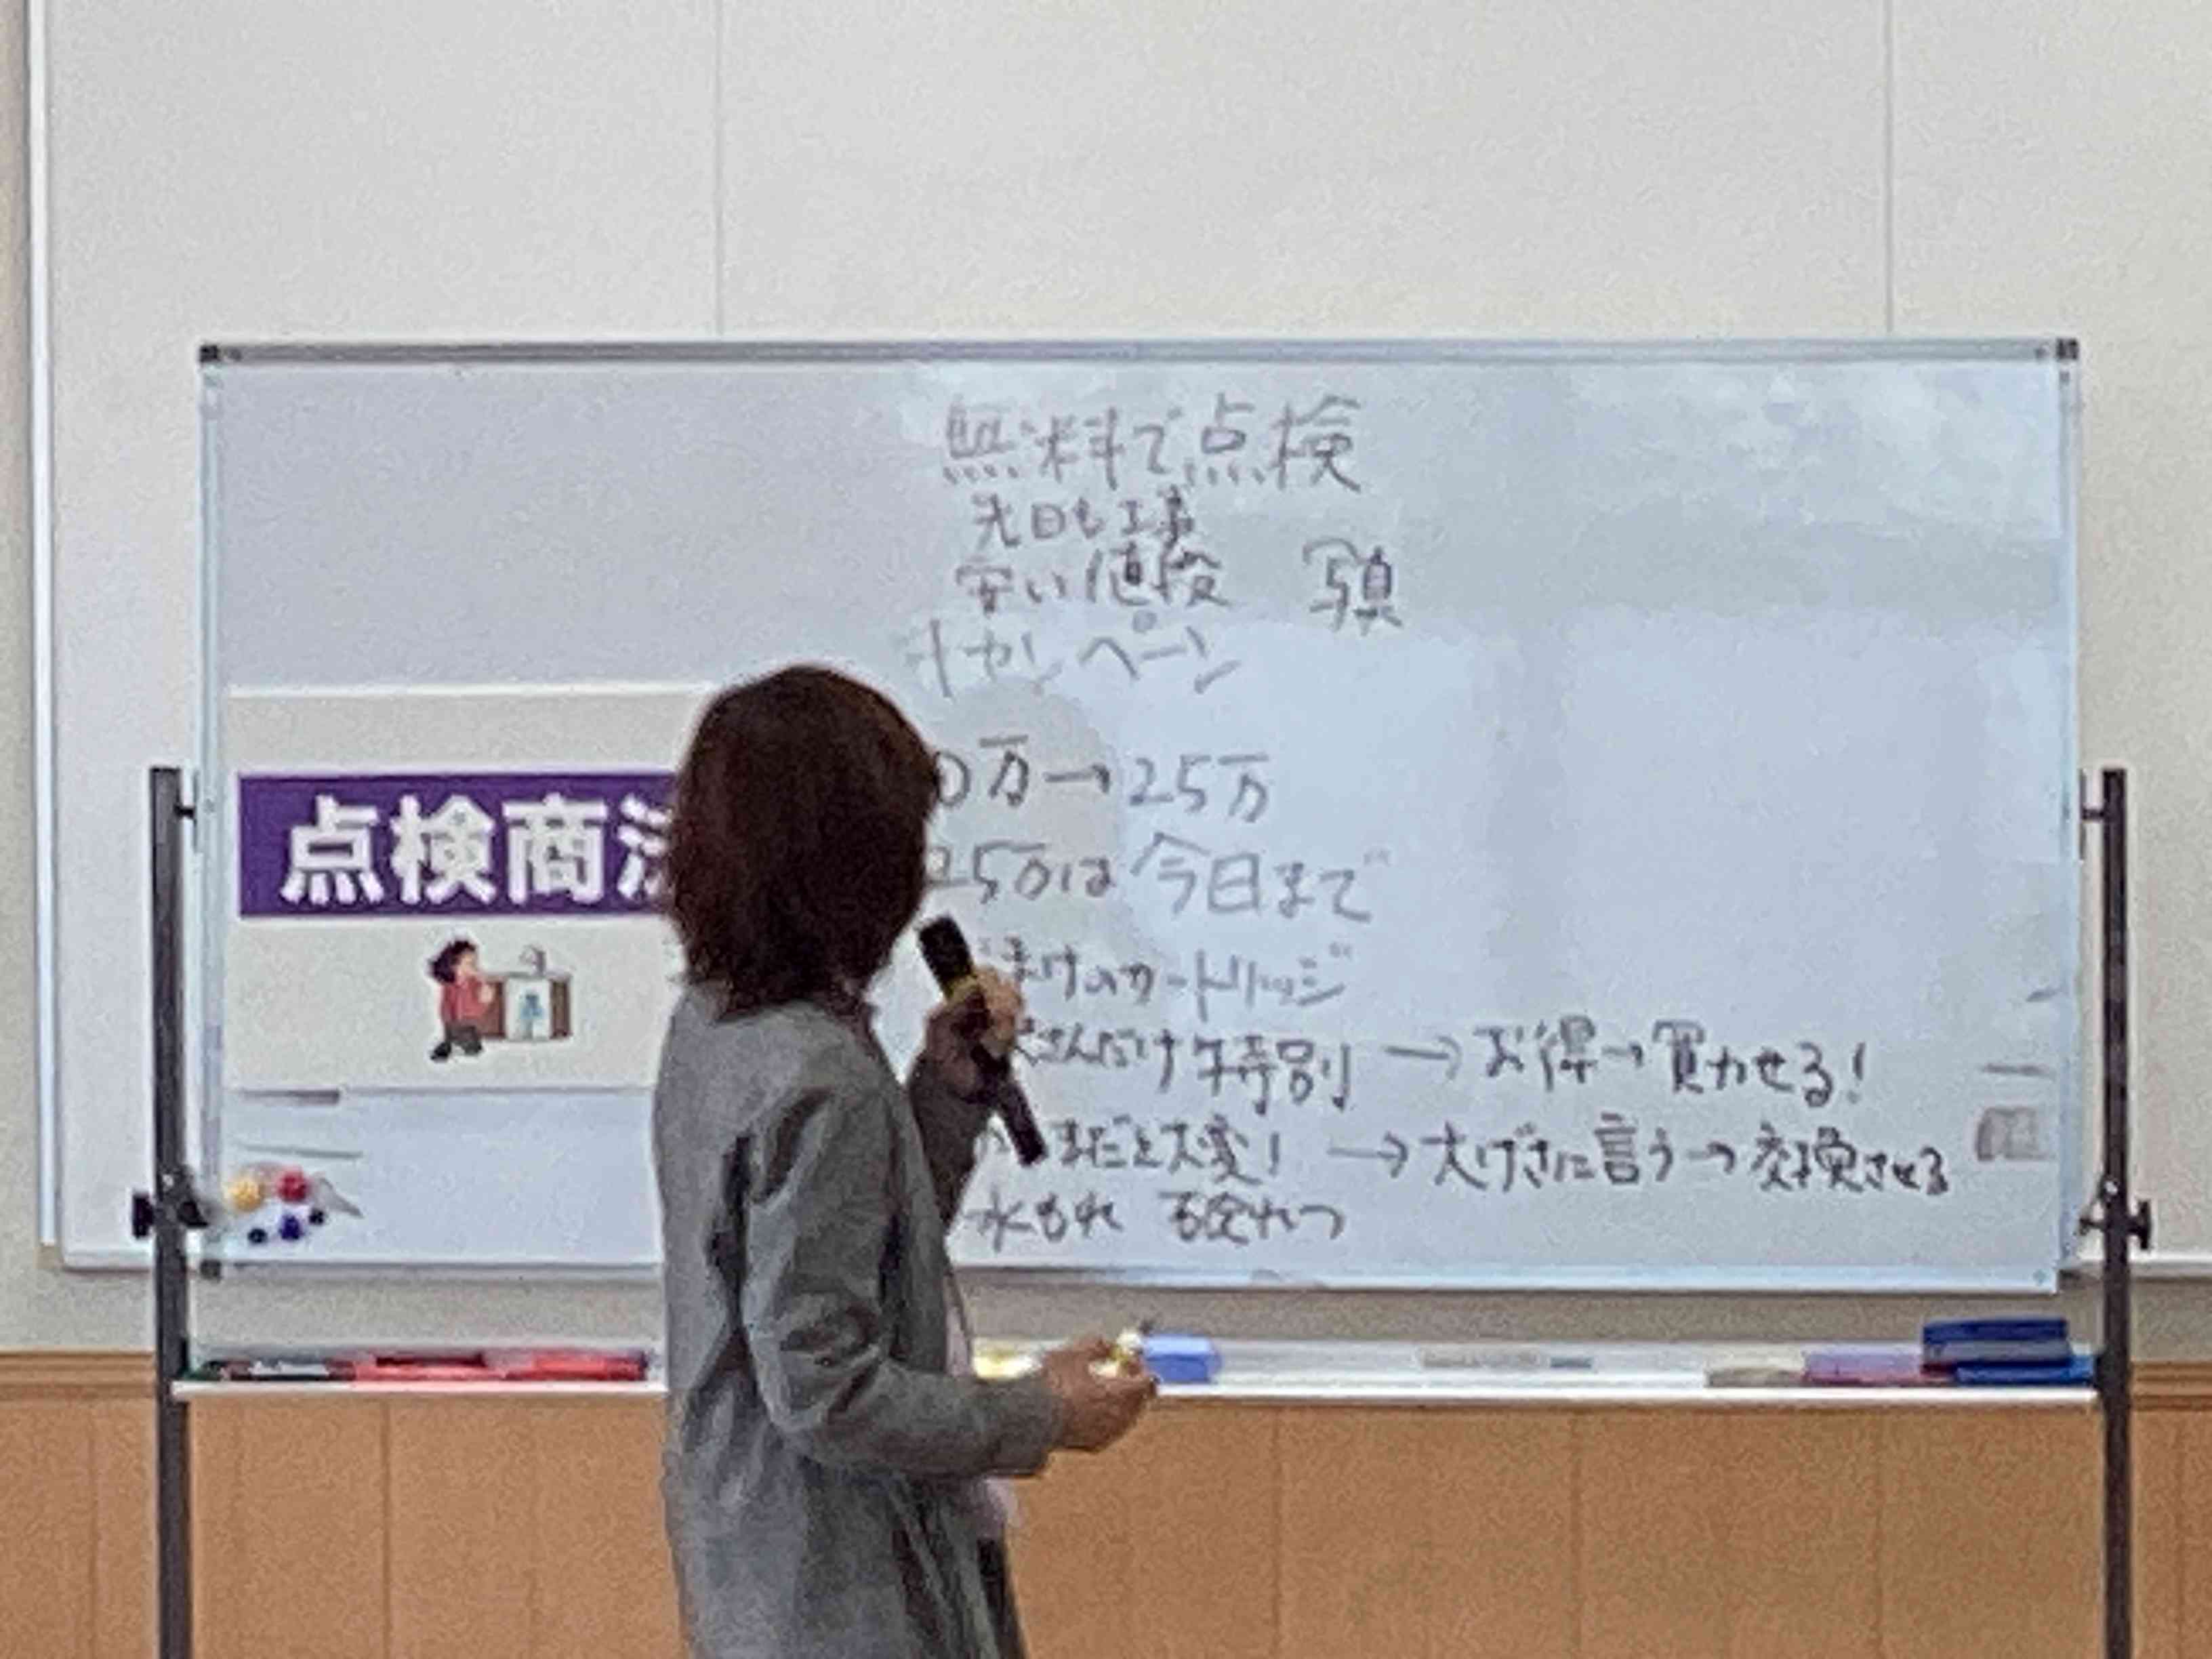 無料で点検
先日も工事
安い値段 写真
キャンペーン
0万→25万
25万は今日まで
点検商法
まけのカートリッジ
さんだけ特別→お得→買わせる!
まだと大変!→大げさに言う→交換させる
水もれ